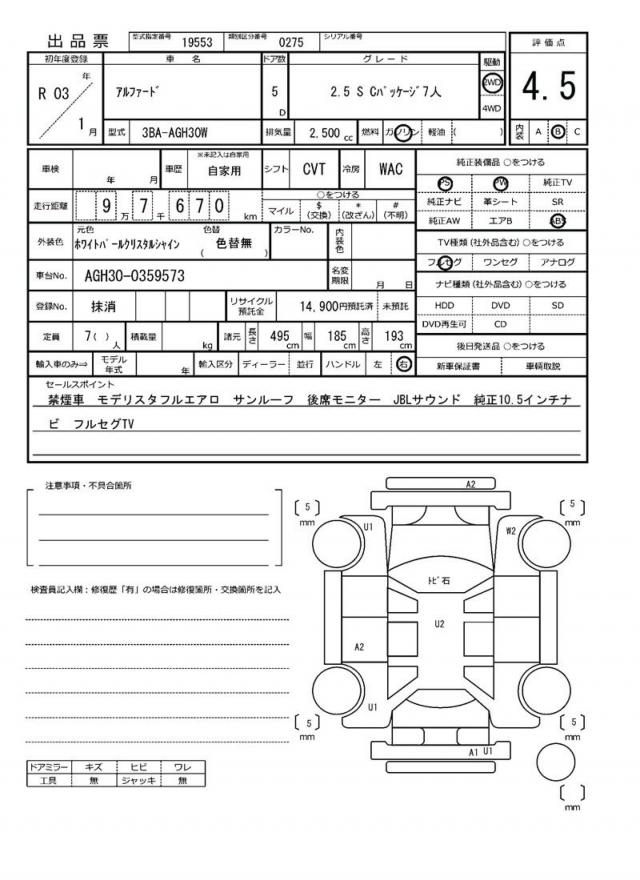 出品票 型式指定番号 19553 類別区分番号 0275 シリアル番号
評価点
4.5
初年度登録 車名 ドア数 グレード 駆動
R 03 年 1 月
アルファード 5 D 2.5 S Cパッケージ7人 2WD 4WD
型式 3BA-AGH30W 排気量 2,500 cc 燃料 ガソリン 軽油 ( ) 内装 A B C
車検 年 月 車歴 ※未記入は自家用 自家用 シフト CVT 冷房 WAC
純正装備品 ○をつける
PS PW 純正TV
純正ナビ 革シート SR
純正AW エアB ABS
走行距離 9 万 7 千 6 7 0 km
○をつける
マイル $ (交換) * (改ざん) # (不明)
TV種類(社外品含む)○をつける
フルセグ ワンセグ アナログ
外装色 元色 ホワイトパールクリスタルシャイン 色替 ( 色替無 ) カラーNo. 内装色
車台No. AGH30-0359573 名変期限 月 日
ナビ種類(社外品含む)○をつける
HDD DVD SD
DVD再生可 CD
登録No. 抹消 リサイクル預託金 14,900円預託済 未預託
定員 7( ) 人 積載量 kg 諸元 長さ 495 cm 幅 185 cm 高さ 193 cm
後日発送品 ○をつける
新車保証書 車輌取説
輸入車のみ⇒ モデル年式 年 輸入区分 ディーラー 並行 ハンドル 左 右
セールスポイント
禁煙車 モデリスタフルエアロ サンルーフ 後席モニター JBLサウンド 純正10.5インチナ
ビ フルセグTV
注意事項・不具合箇所
検査員記入欄:修復歴「有」の場合は修復箇所・交換箇所を記入
A2
5 mm
5 mm
U1
W2
トビ石
U2
A2
U1
5 mm
5 mm
A1 U1
mm
ドアミラー キズ ヒビ ワレ
工具 無 ジャッキ 無